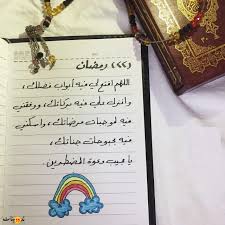 (٢٢) رمضان
اللهم افتح لي فيه أبواب فضلك،
وانزل علي فيه بركاتك، ووفقني
فيه لموجبات مرضاتك، واسكني
فيه بحبوحات جناتك،
يا مجيب دعوة المضطرين.